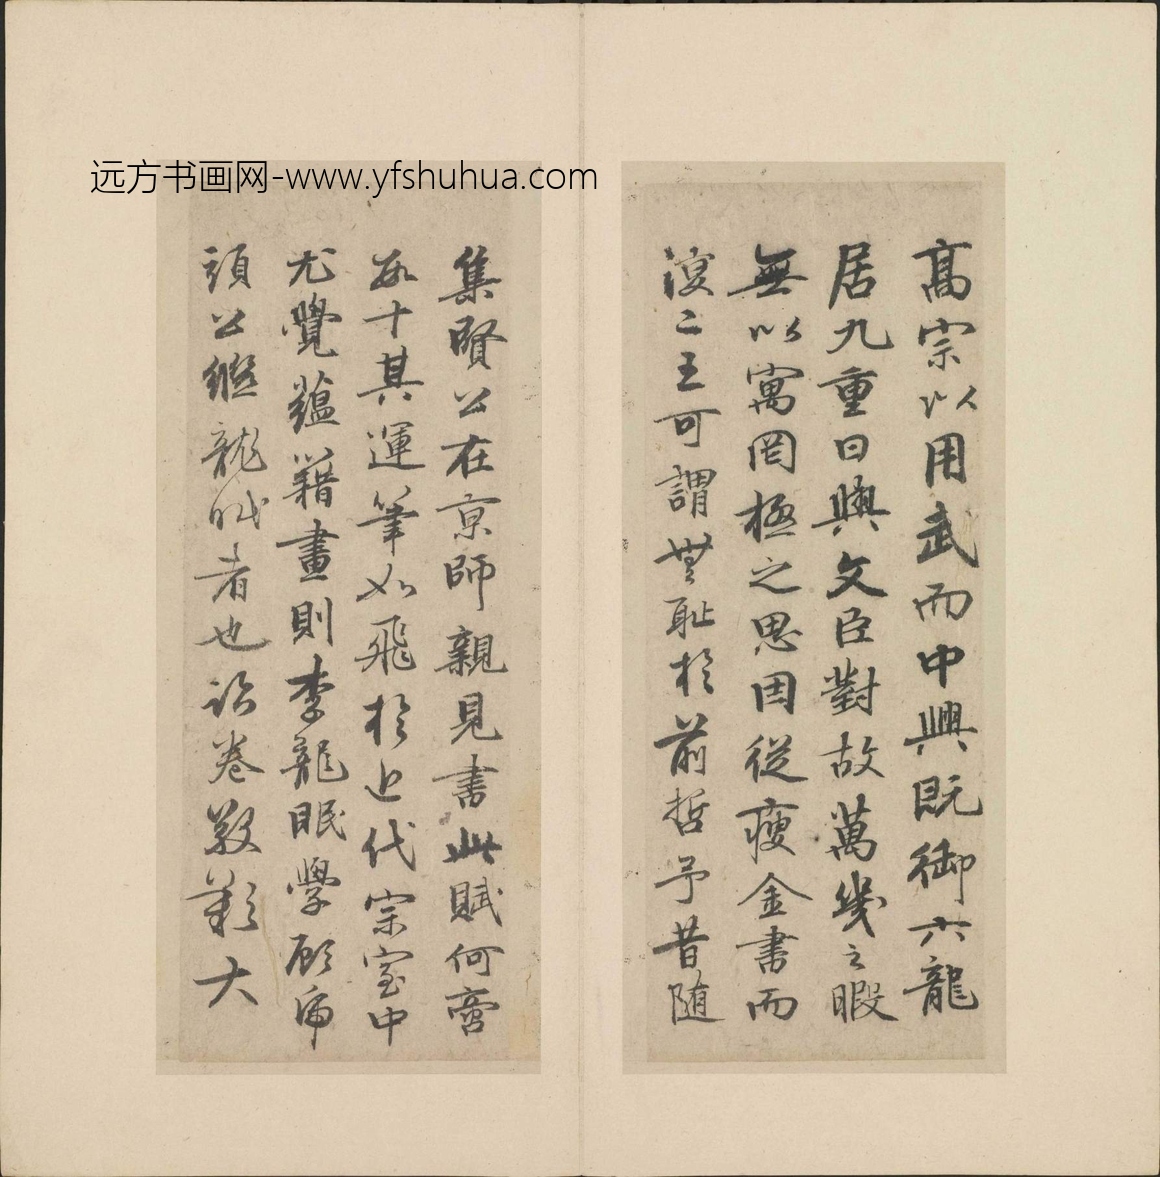 远方书画网-www.yfshuhua.com
高宗以用武而中興既御六龍
居九重日與文臣對故萬幾之暇
無以寓罔極之思因從瘦金書而
二王可謂無耻於前哲予昔随
集賢公在京師親見書此賦何啻
數十其運筆如飛於近代宗室中
尤覺蘊籍畫則李龍眠學顧虎
頭公繼龍眠者也卷歎大